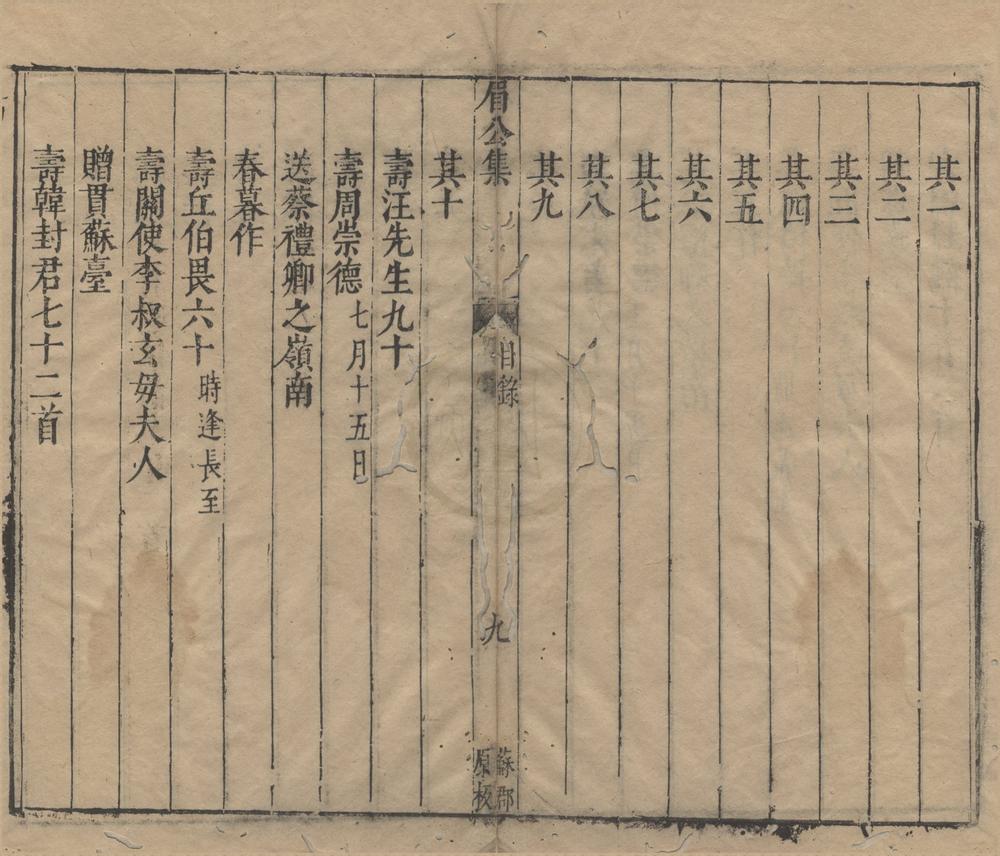 其一
其二
其三
其四
其五
其六
其七
其八
其九
眉公集
目錄
九
蘇郡
原板
其十
壽汪先生九十
壽周崇德七月十五日
送蔡禮卿之嶺南
春暮作
壽丘伯畏六十時逢長至
壽關使李叔玄毋夫人
贈貫蘇臺
壽韓封君七十二首